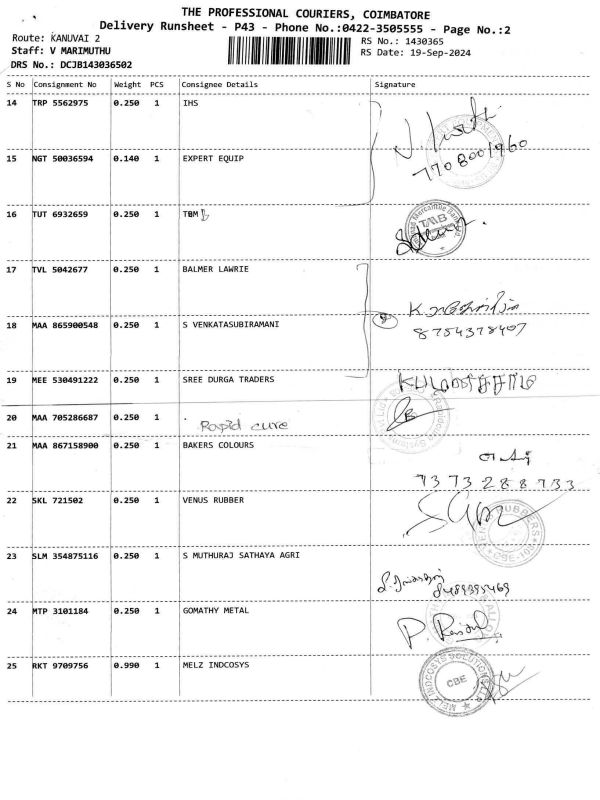 THE PROFESSIONAL COURIERS, COIMBATORE
Delivery Runsheet - P43 - Phone No.:0422-3505555 - Page No.:2
Route: KANUVAI 2
RS No.: 1430365
Staff: V MARIMUTHU
RS Date: 19-Sep-2024
DRS No.: DCJB143036502
S No Consignment No Weight PCS Consignee Details Signature
14 TRP 5562975 0.250 1 IHS
15 NGT 50036594 0.140 1 EXPERT EQUIP
7708001960
16 TUT 6932659 0.250 1 TBM
TMB
17 TVL 5042677 0.250 1 BALMER LAWRIE
18 MAA 865900548 0.250 1 S VENKATASUBIRAMANI
8754378407
19 MEE 530491222 0.250 1 SREE DURGA TRADERS
20 MAA 705286687 0.250 1 Rapid cure
21 MAA 867158900 0.250 1 BAKERS COLOURS
7373288733
22 SKL 721502 0.250 1 VENUS RUBBER
23 SLM 354875116 0.250 1 S MUTHURAJ SATHAYA AGRI
8489395469
24 MTP 3101184 0.250 1 GOMATHY METAL
25 RKT 9709756 0.990 1 MELZ INDCOSYS
MELZ INDCOSYS SOLUTIONS
CBE